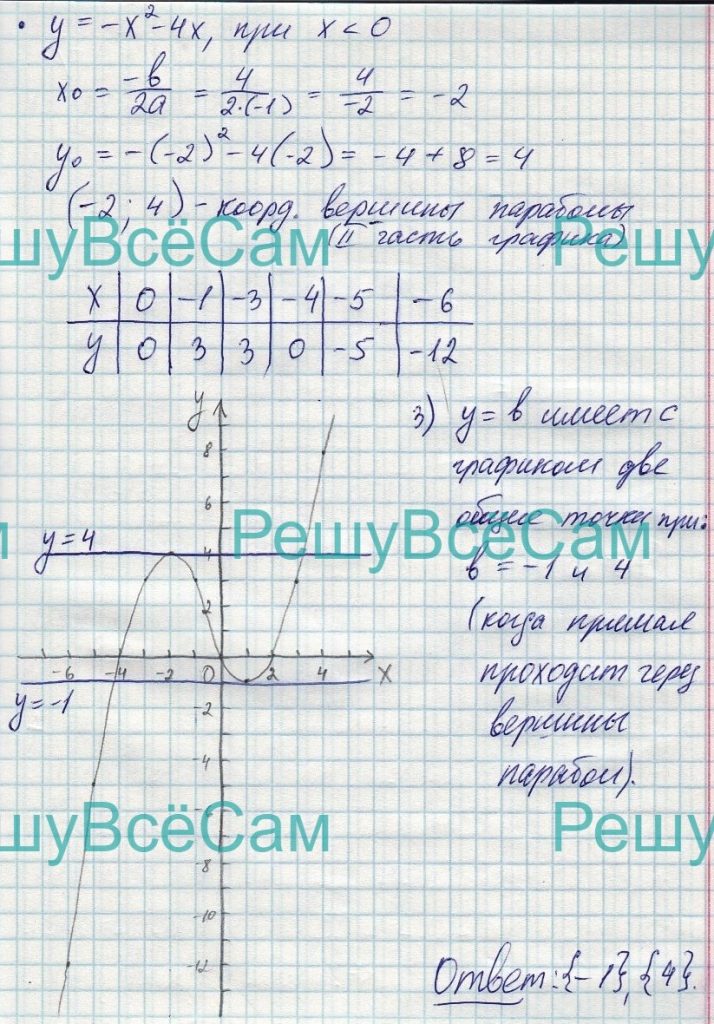 • y = -x² - 4x, при x < 0
x₀ = -в/2а = 4/2·(-1) = 4/-2 = -2
y₀ = -(-2)² - 4(-2) = -4 + 8 = 4
(-2; 4) - коорд. вершины параболы
(II часть графика)
уВсёСам Решу
x 0 -1 -3 -4 -5 -6
y 0 3 3 0 -5 -12
3) y = в имеет с
графиком две
общие точки при:
в = -1 и 4
(когда прямая
проходит через
вершины
парабол).
y
8
6
y = 4
РешуВсёСам
4
2
-6 -4 -2 0 2 4 x
y = -1
-2
-4
шуВсёСам Решу
-8
-10
-12
Ответ: {-1}, {4}.